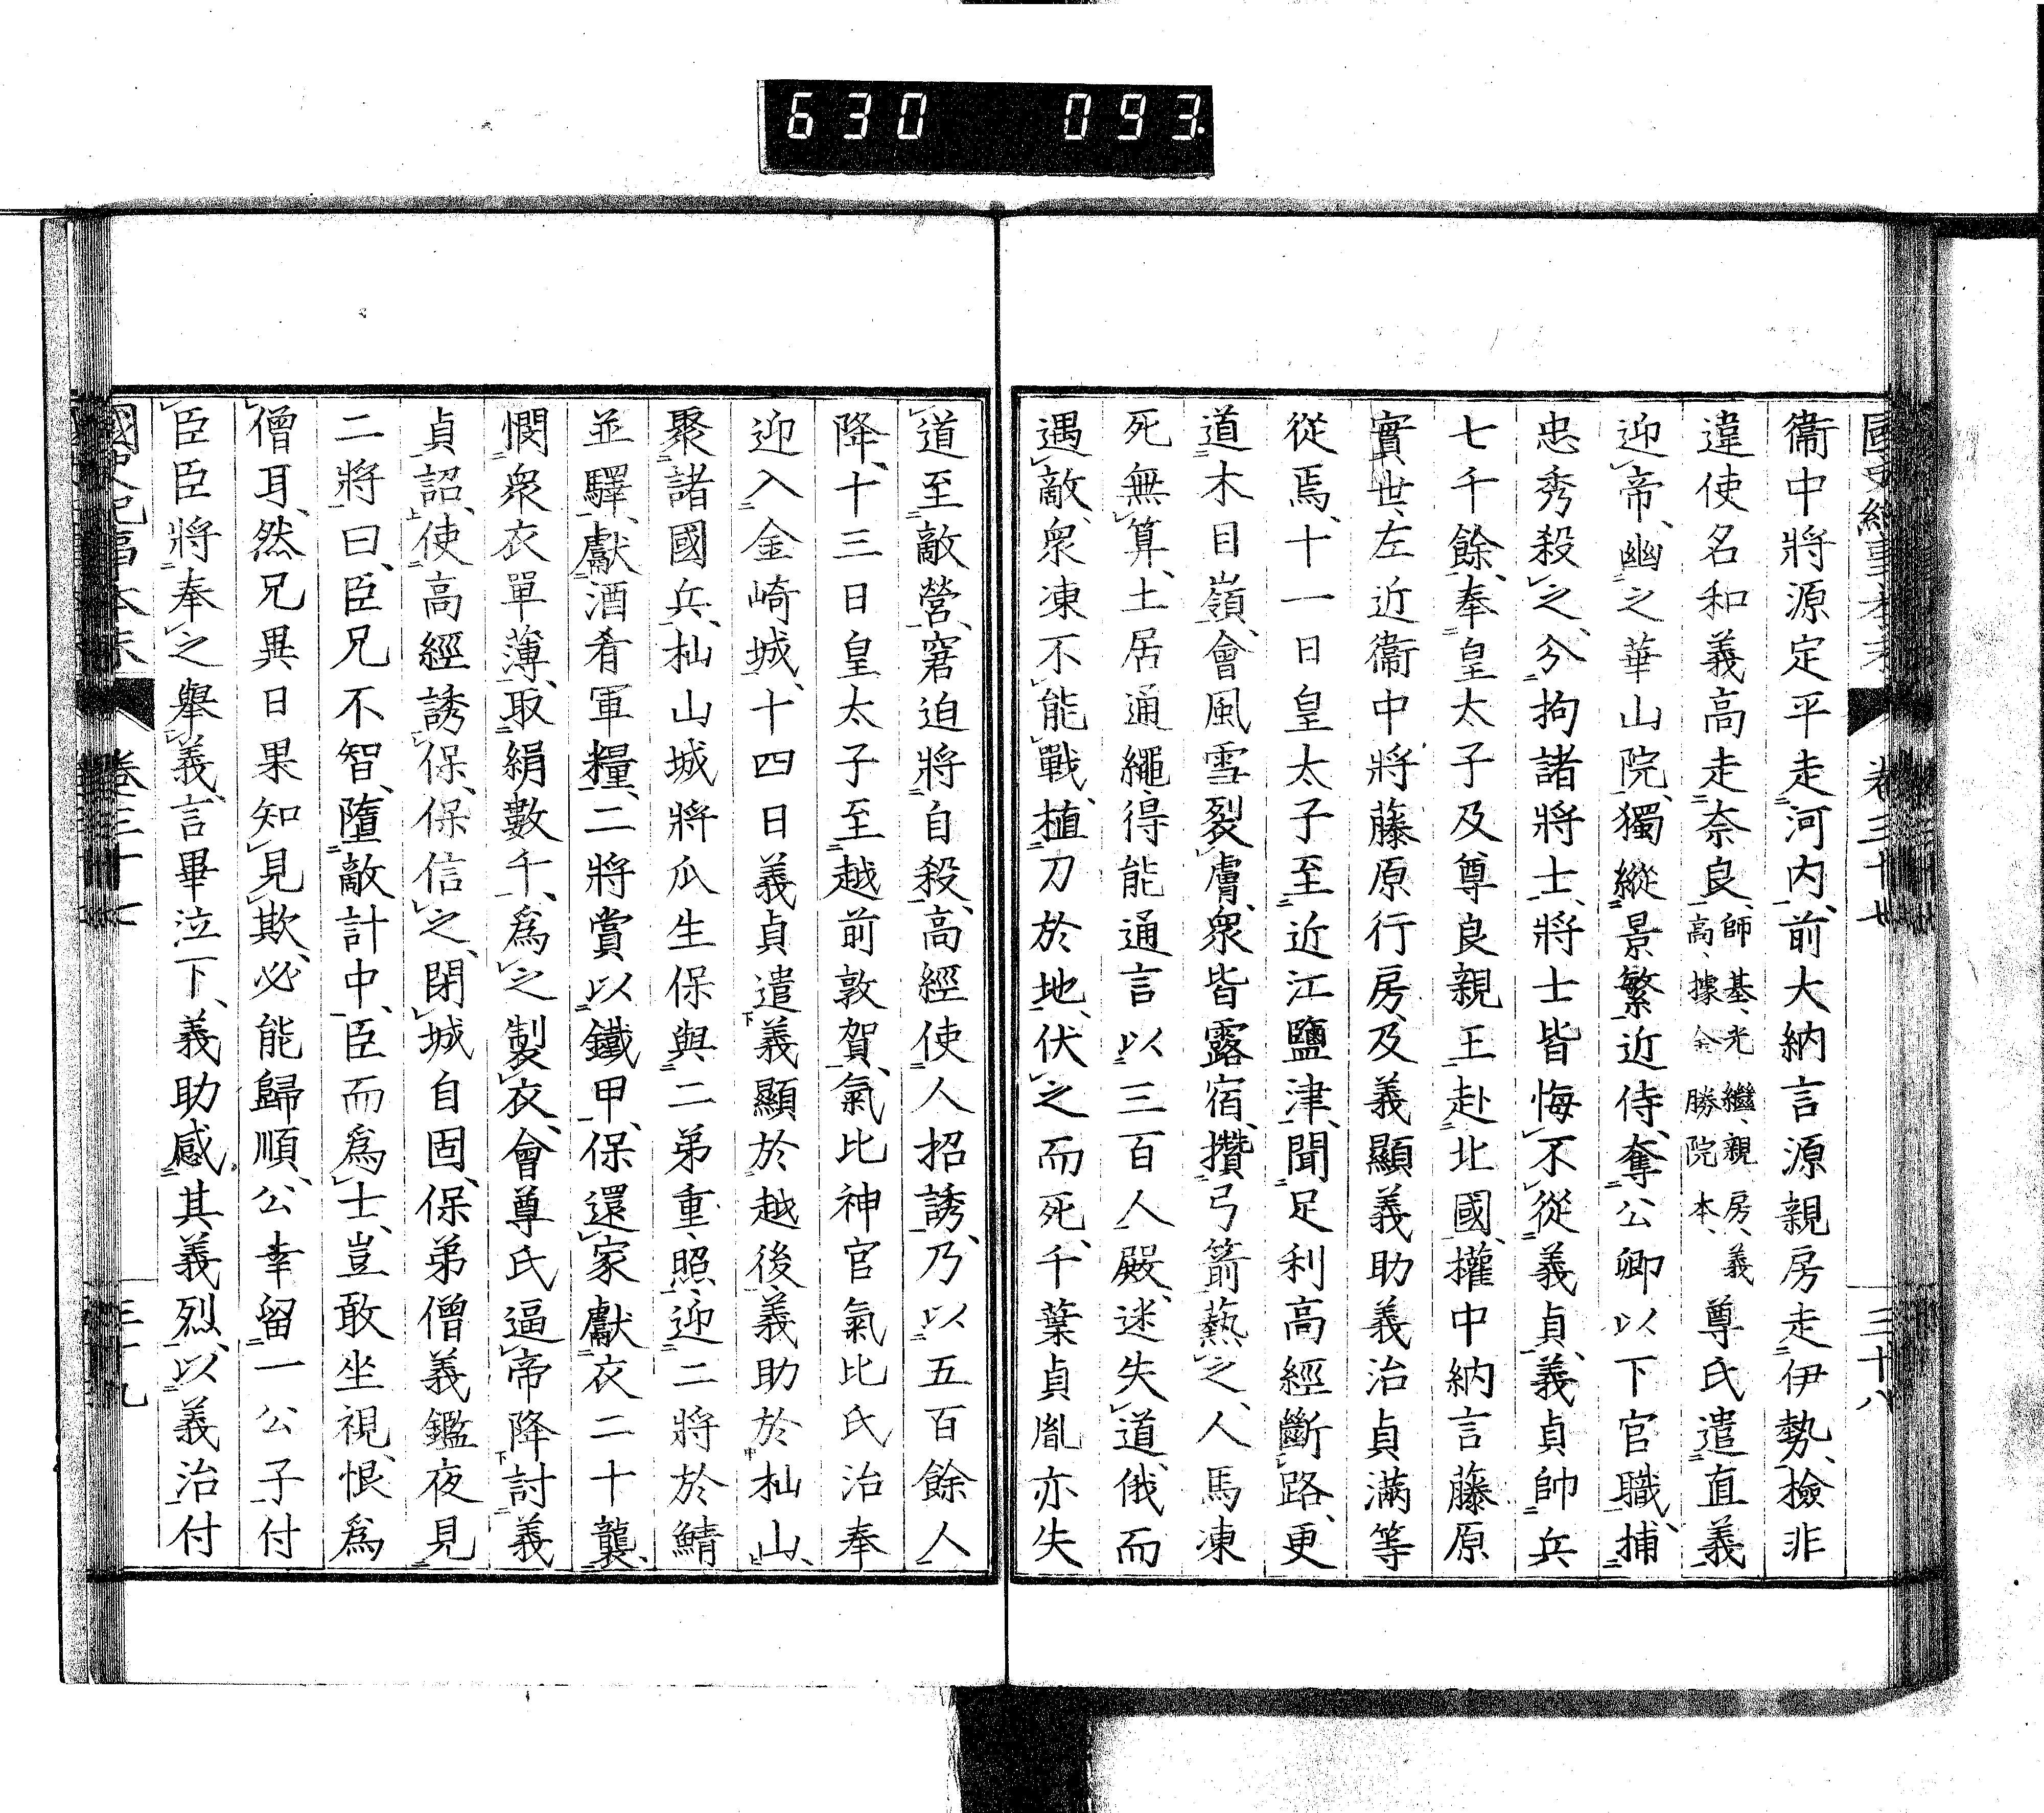 630 093.
衞中將源定平走河内、前大納言源親房走伊勢、檢非
違使名和義高走奈良、師基、光繼、親房、義高、據金勝院本、尊氏遣直義
迎帝、幽之華山院、獨縱景繁近侍、奪公卿以下官職、捕
忠秀殺之、分拘諸將士、將士皆悔不從義貞、義貞帥兵
七千餘、奉皇太子及尊良親王赴北國、權中納言藤原
實世、左近衞中將藤原行房、及義顯義助義治貞滿等
從焉、十一日皇太子至近江鹽津、聞足利高經斷路、更
道木目嶺、會風雪裂膚、衆皆露宿、攢弓箭爇之、人馬凍
死無算、土居通繩、得能通言以三百人殿、迷失道、俄而
遇敵、衆凍不能戰、植刀於地、伏之而死、千葉貞胤亦失
卷三十七
三十八
道至敵營、窘迫將自殺、高經使人招誘、乃以五百餘人
降、十三日皇太子至越前敦賀、氣比神官氣比氏治奉
迎入金崎城、十四日義貞遣義顯於越後、義助於杣山、
聚諸國兵、杣山城將瓜生保與二弟重、照、迎二將於鯖
並驛、獻酒肴軍糧、二將賞以鐵甲、保還家獻衣二十襲、
憫衆衣單薄、取絹數千、爲之製衣、會尊氏逼帝降討義
貞詔、使高經誘保、保信之、閉城自固、保弟僧義鑑夜見
二將曰、臣兄不智、墮敵計中、臣而爲士、豈敢坐視、恨爲
僧耳、然兄異日果知見欺、必能歸順、公幸留一公子付
臣臣將奉之舉義、言畢泣下、義助感其義烈、以義治付
國史紀事本末
卷三十七
三十九